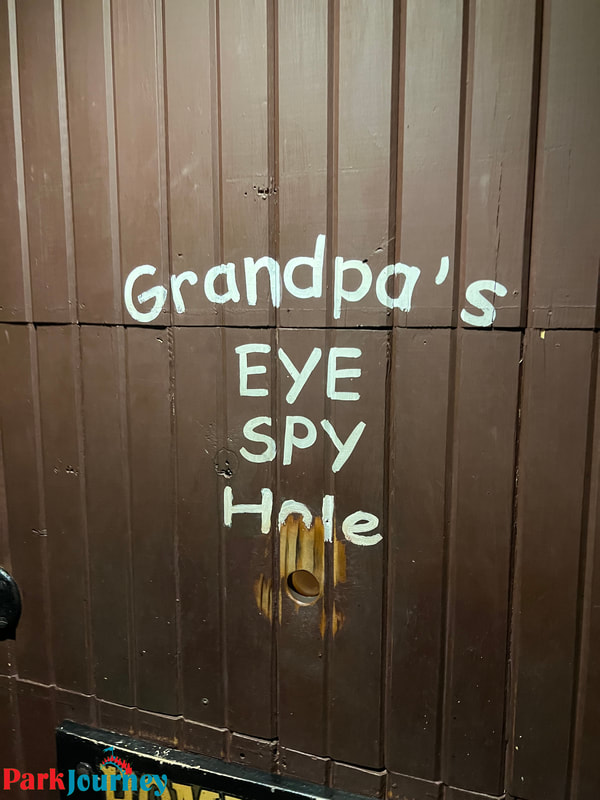 Grandpa's
EYE
SPY
Hole
ParkJourney